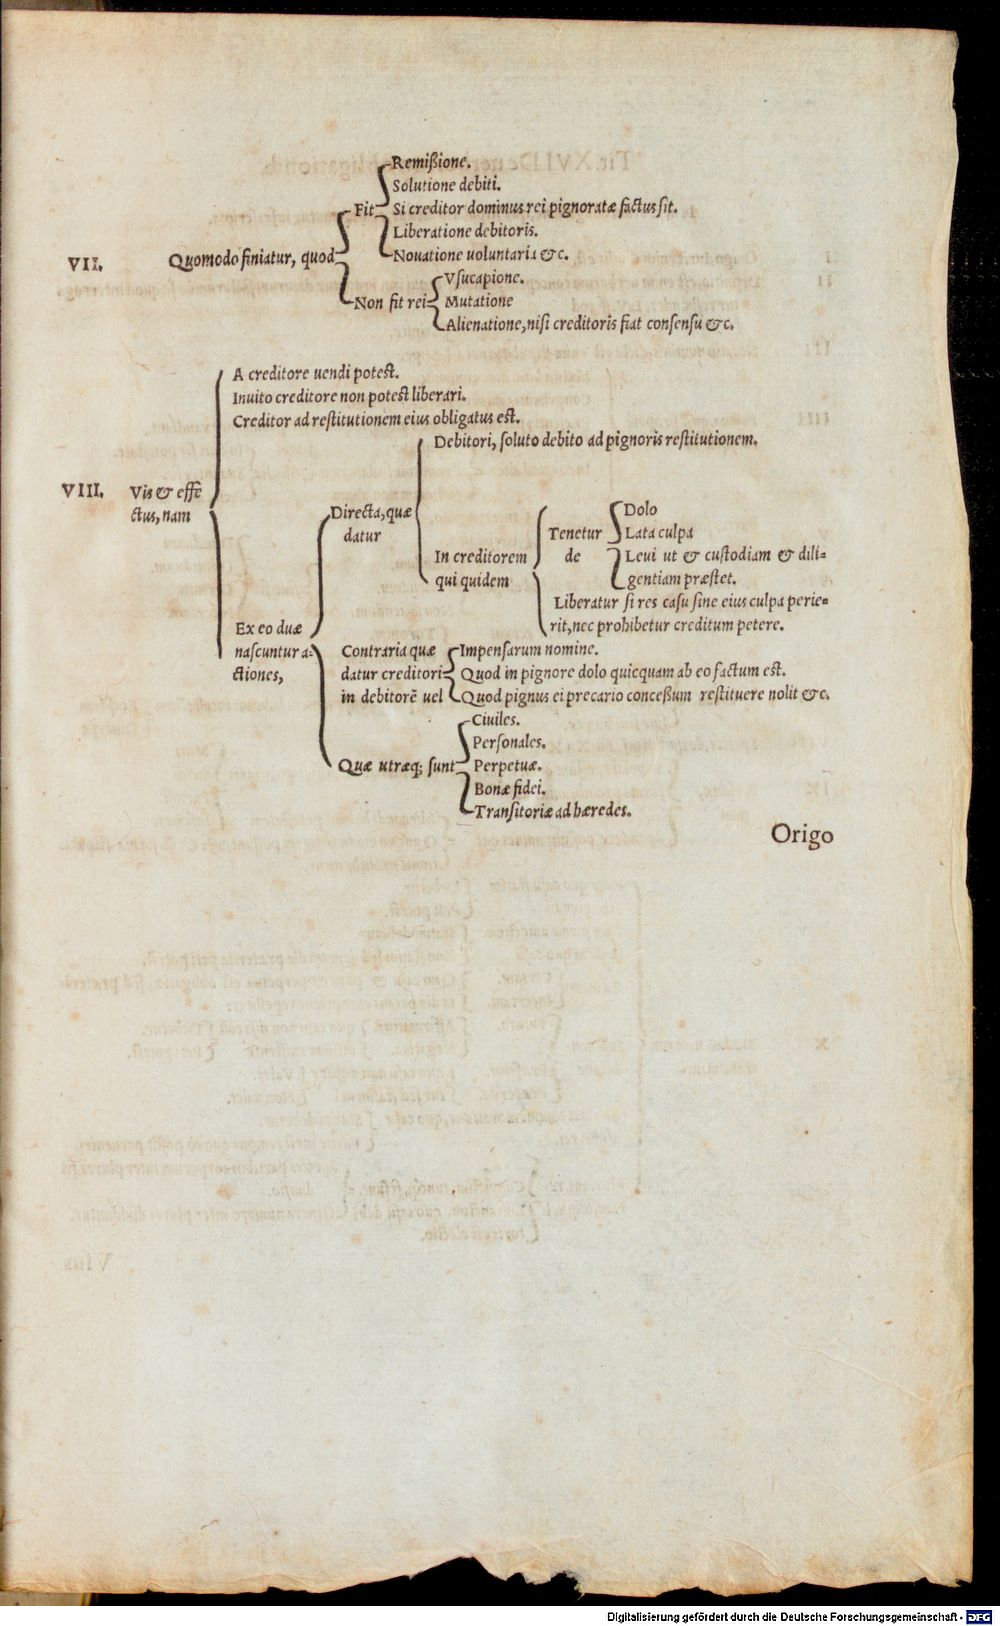 Remißione.
Solutione debiti.
Fit Si creditor dominus rei pignoratæ factus sit.
Liberatione debitoris.
VII. Quomodo finiatur, quod Nouatione voluntaria &c.
Vsucapione.
Non fit rei Mutatione
Alienatione, nisi creditoris fiat consensu &c.
A creditore uendi potest.
Inuito creditore non potest liberari.
Creditor ad restitutionem eius obligatus est.
Debitori, soluto debito ad pignoris restitutionem.
VIII. Vis & effe
ctus, nam
Directa, quæ
datur
In creditorem
qui quidem
Tenetur
de
Dolo
Lata culpa
Leui ut & custodiam & dili-
gentiam præstet.
Liberatur si res casu sine eius culpa perie-
rit, nec prohibetur creditum petere.
Ex eo duæ
nascuntur a-
ctiones,
Contraria quæ
datur creditori
in debitorē uel
Impensarum nomine.
Quod in pignore dolo quicquam ab eo factum est.
Quod pignus ei precario conceßum restituere nolit &c.
Quæ utræq; sunt
Ciuiles.
Personales.
Perpetuæ.
Bonæ fidei.
Transitoriæ ad hæredes.
Origo
Digitalisierung gefördert durch die Deutsche Forschungsgemeinschaft - DFG